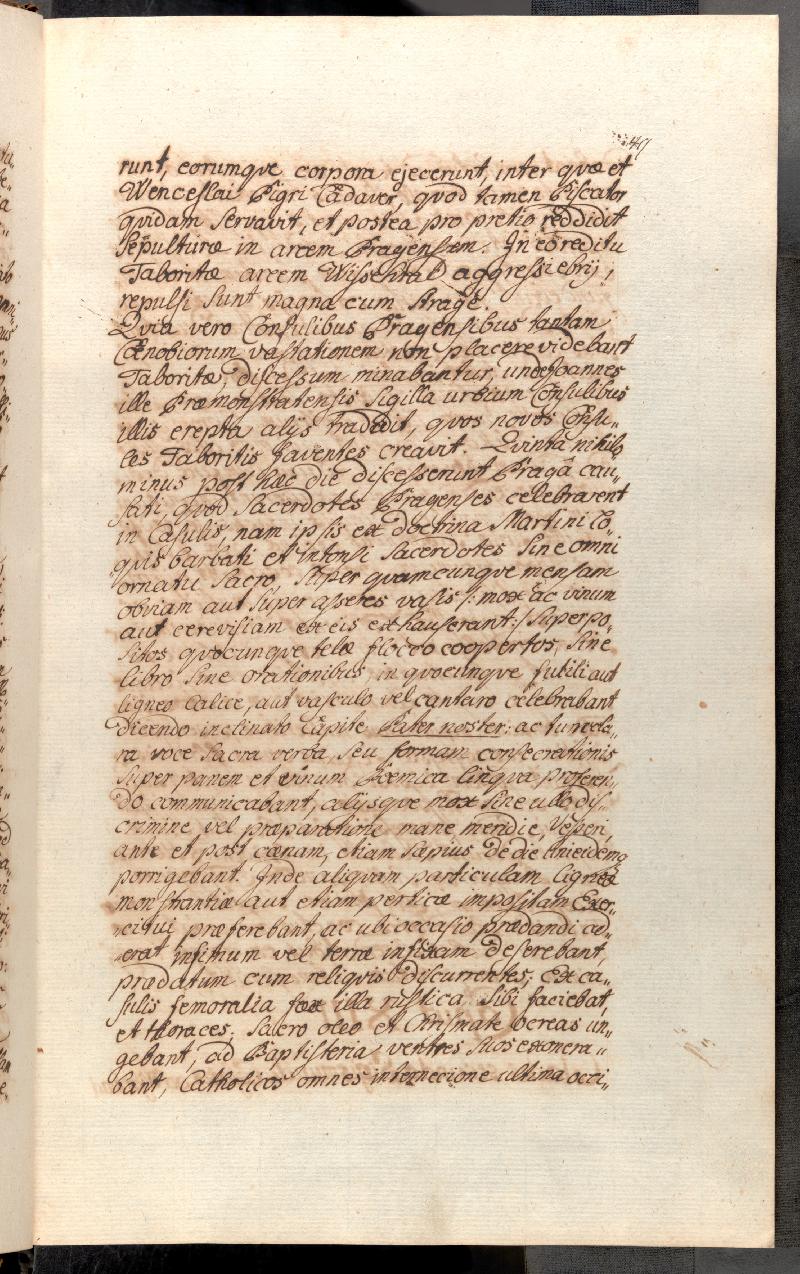 49
runt, eorumqve corpora ejecerunt, inter qvæ et
Wenceslai Pigri Cadaver, qvod tamen Piscator
qvidam servavit, et postea pro pretio reddidit
sepulturæ in arcem Pragensem. In eo reditu
Taboritæ arcem Wissehrad aggressi ebrij,
repulsi sunt magna cum strage.
Qvia vero Consulibus Pragensibus tantam
Cœnobiorum vastationem non placere videbant
Taboritæ, discessum minabantur, unde Joannes
ille Præmonstratensis sigilla urbium Consulibus
illis erepta alijs tradidit, qvos novos Consu„
les Taboritis faventes creavit. Qvinta nihilo
minus post hæc die discesserunt Pragâ cau„
sati, qvod Sacerdotes Pragenses celebrarent
in Casulis, nam ipsis ex doctrina Martini Lo„
qvis barbati et intonsi Sacerdotes sine omni
ornatu sacro, super qvamcunqve mensam
obviam aut super asseres vasis /: mox ac vinum
aut cerevisiam ex eis exhauserant :/ superpo„
sitos qvocunqve telæ flocco coopertos, sine
libro sine orationibus, in qvocunqve futili aut
ligneo calice, aut vasculo vel cantaro celebrabant
dicendo inclinato Capite Pater noster: ac tum cla„
ra voce sacra verba, seu formam consecrationis
super panem et vinum Boemica lingva proferen„
do communicabant, alijsqve mox sine ullo dis„
crimine vel præparatione mane meridie, Vesperi,
ante et post cœnam, etiam sæpius de die uni eidemq
porrigebant. Inde aliqvam particulam ligneæ
monstrantiæ aut etiam perticæ impositam Exer„
citui præferebant, ac ubi occasio prædandi ad„
erat infimum vel terræ infixam deserebant,
prædatum cum reliqvis discurrentes, Ex ca„
sulis femoralia fæx illa rustica sibi faciebat,
et thoraces; Sacro oleo et Chrismate ocreas un„
gebant, ad Baptisteria ventres suos exonera„
bant, Catholicos omnes internecione ultima occi„